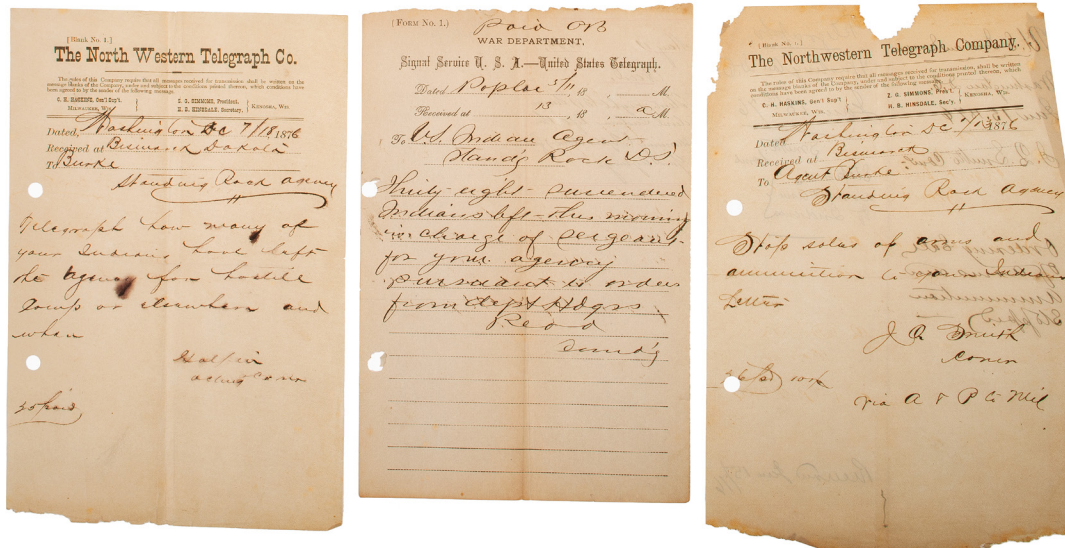 [Blank No. 1.]
The North Western Telegraph Co.
The rules of this Company require that all messages received for transmission, shall be written on
the message blanks of the Company, under and subject to the conditions printed thereon, which conditions have
been agreed to by the sender of the following message.
C. H. HASKINS, Gen'l Sup't,
MILWAUKEE, WIS.
Z. G. SIMMONS, President.
H. B. HINSDALE, Secretary.
KENOSHA, WIS
Dated, Washington DC 7/18 1876
Received at Bismarck Dakota
To Burke
Standing Rock Agency
Telegraph how many of
your Indians have left
the agency for hostile
camp or elsewhere and
when
Acting Comr
20 paid
(FORM No. 1.)
Paid
WAR DEPARTMENT,
Signal Service U. S. A.—United States Telegraph.
Dated Poplar 5/11 18 , M.
Received at 13 18 , a M.
To U.S. Indian Agent
Standg Rock D.T.
Thirty-eight surrendered
Indians left this morning
in charge of sergeant
for your agency
pursuant to orders
from dept Hdqrs.
Read
Comd'g
[Blank No. 1.]
The Northwestern Telegraph Company.
The rules of this Company require that all messages received for transmission, shall be written
on the message blanks of the Company, under and subject to the conditions printed thereon, which
conditions have been agreed to by the sender of the following message.
C. H. HASKINS, Gen'l Sup't
MILWAUKEE, WIS.
Z. G. SIMMONS, Pres't.
H. B. HINSDALE, Sec'y.
KENOSHA, WIS.
Dated Washington DC 1876
Received at Bismarck
To Agent Burke
Standing Rock Agency
Stop sales of arms and
ammunition to your Indians
Letter
J Q Smith
Comr
via A & P Co Mil